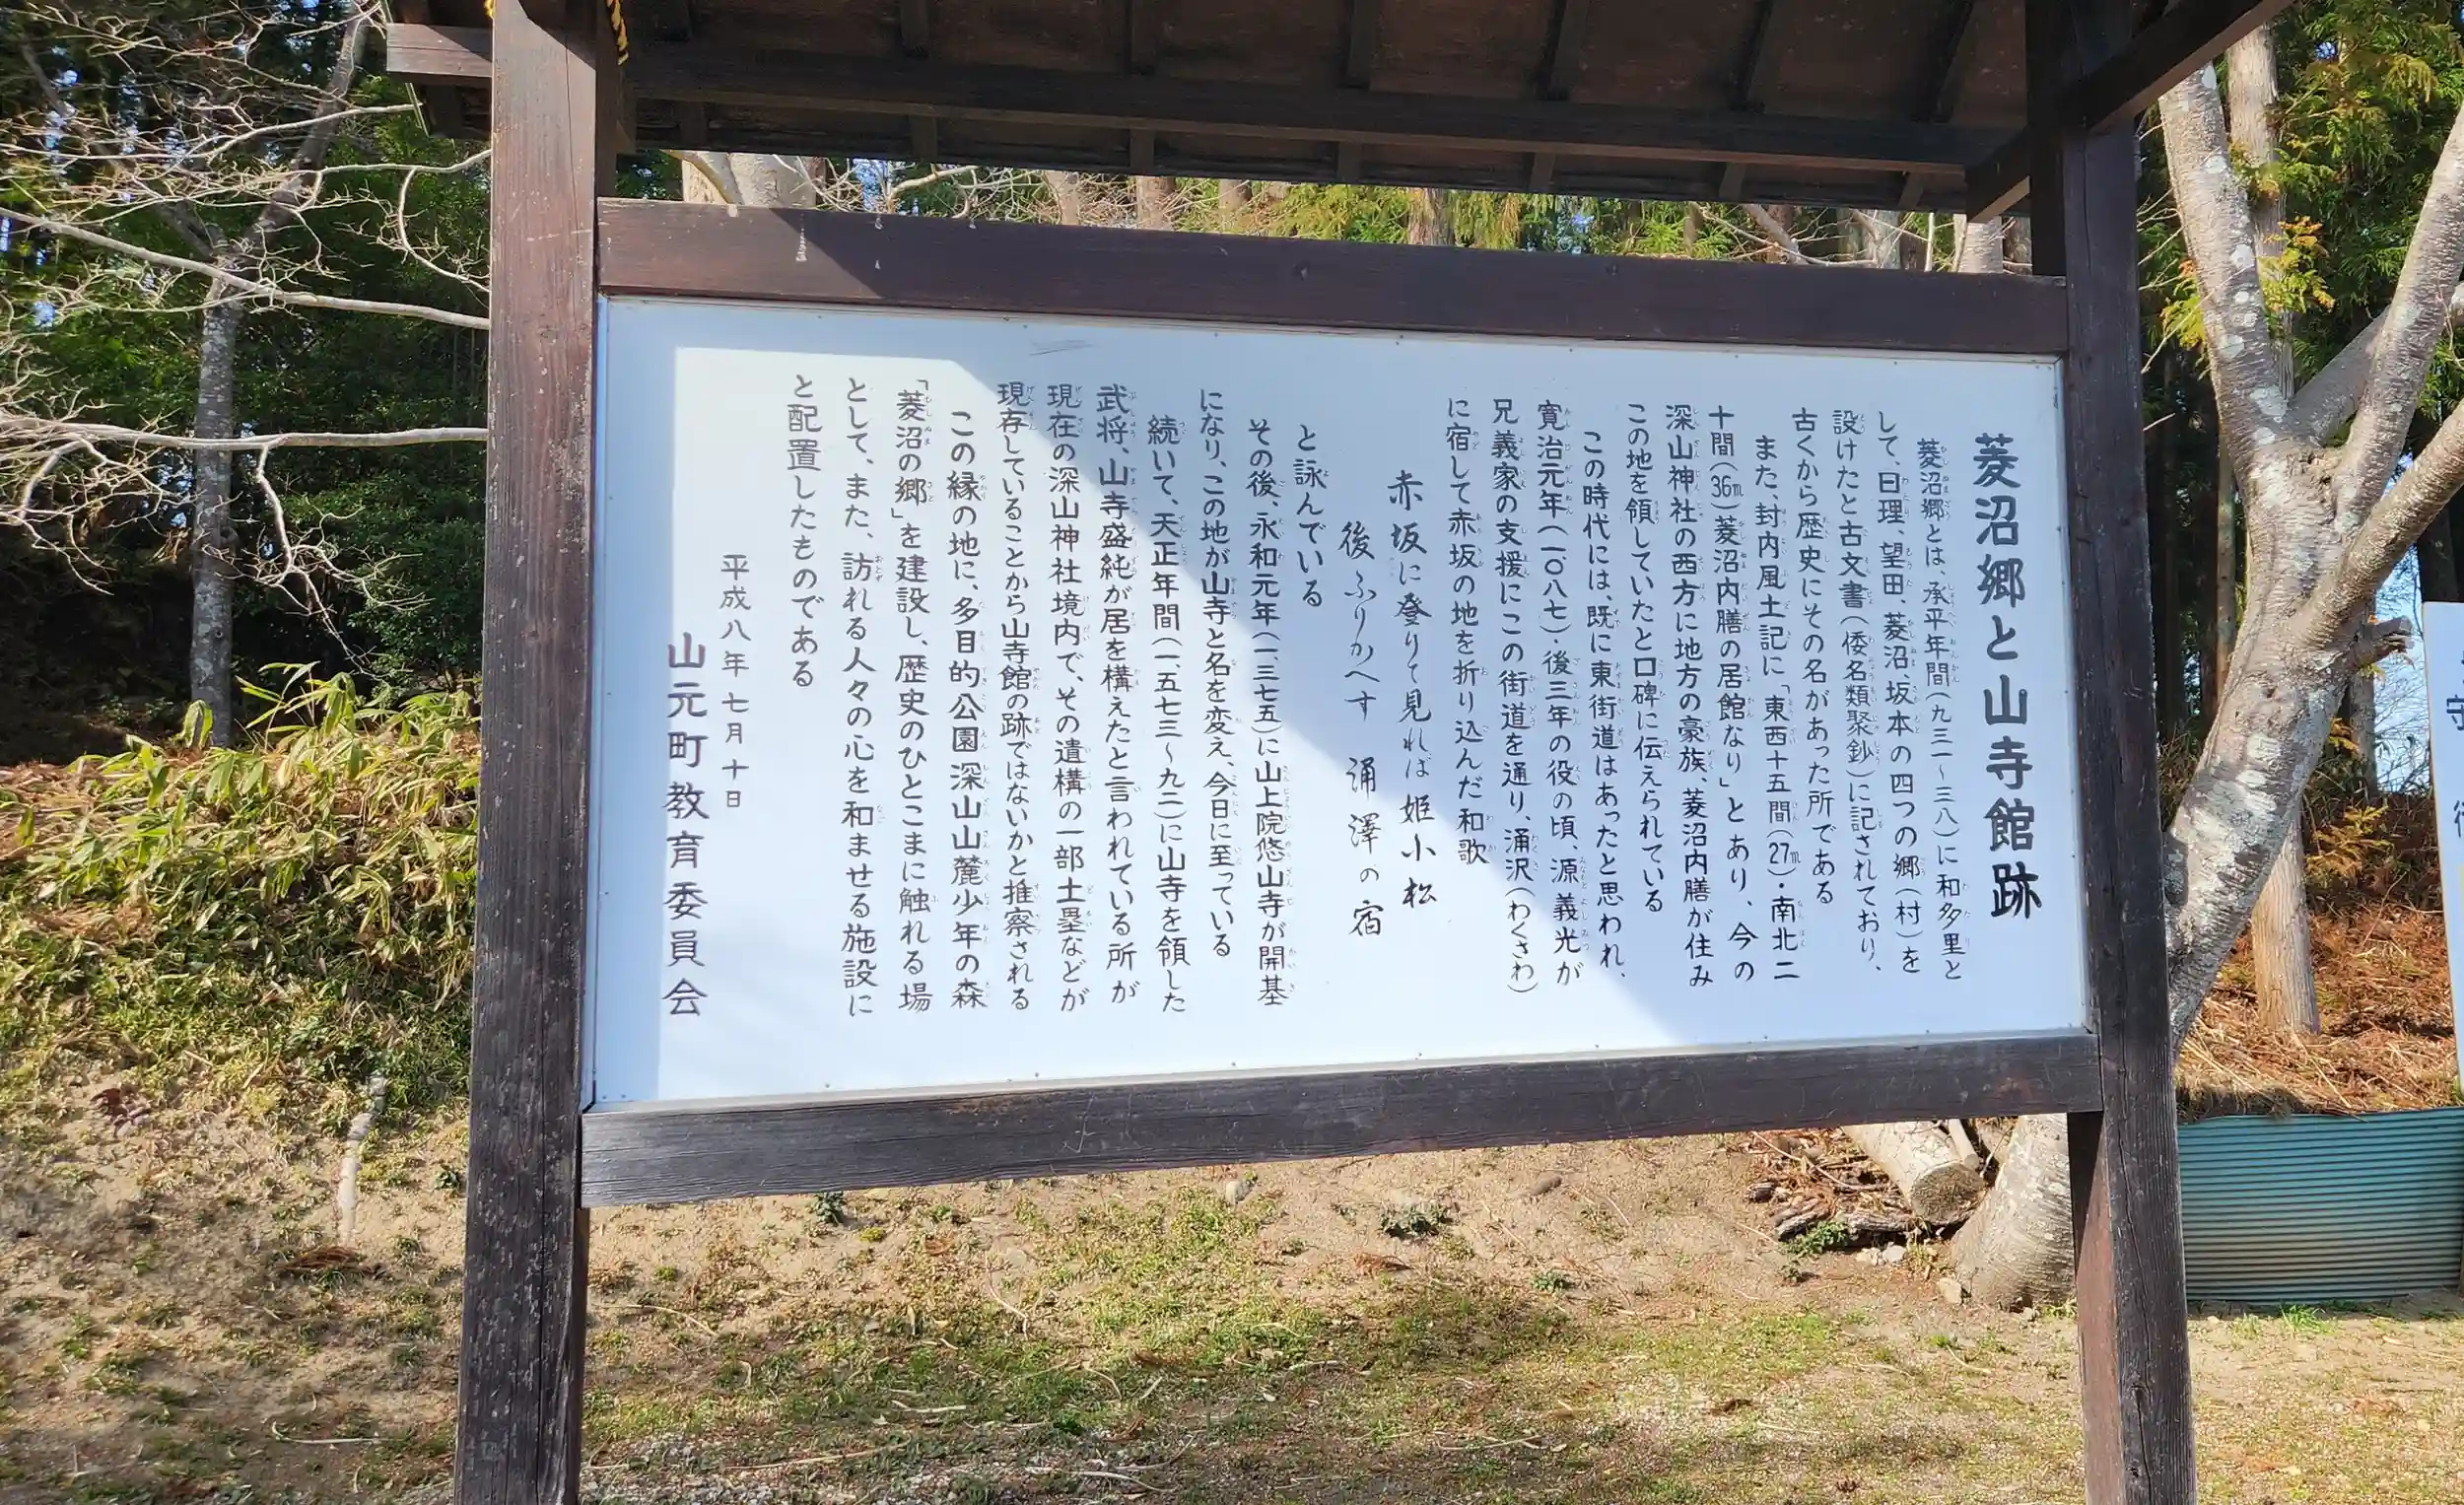 菱沼郷と山寺館跡
菱沼郷とは、承平年間(九三一～三八)に和多里と
して、日理、望田、菱沼、坂本の四つの郷(村)を
設けたと古文書(倭名類聚鈔)に記されており、
古くから歴史にその名があった所である
また、封内風土記に「東西十五間(27m)・南北二
十間(36m)菱沼内膳の居館なり」とあり、今の
深山神社の西方に地方の豪族、菱沼内膳が住み
この地を領していたと口碑に伝えられている
この時代には、既に東街道はあったと思われ、
寛治元年(一〇八七)・後三年の役の頃、源義光が
兄義家の支援にこの街道を通り、涌沢(わくさわ)
に宿して赤坂の地を折り込んだ和歌
赤坂に登りて見れば姫小松
後ふりかへす 涌澤の宿
と詠んでいる
その後、永和元年(一、三七五)に山上院悠山寺が開基
になり、この地が山寺と名を変え、今日に至っている
続いて、天正年間(一、五七三～九二)に山寺を領した
武将、山寺盛純が居を構えたと言われている所が
現在の深山神社境内で、その遺構の一部土塁などが
現存していることから山寺館の跡ではないかと推察される
この縁の地に、多目的公園深山山麓少年の森
「菱沼の郷」を建設し、歴史のひとこまに触れる場
として、また、訪れる人々の心を和ませる施設に
と配置したものである
平成八年七月十日
山元町教育委員会